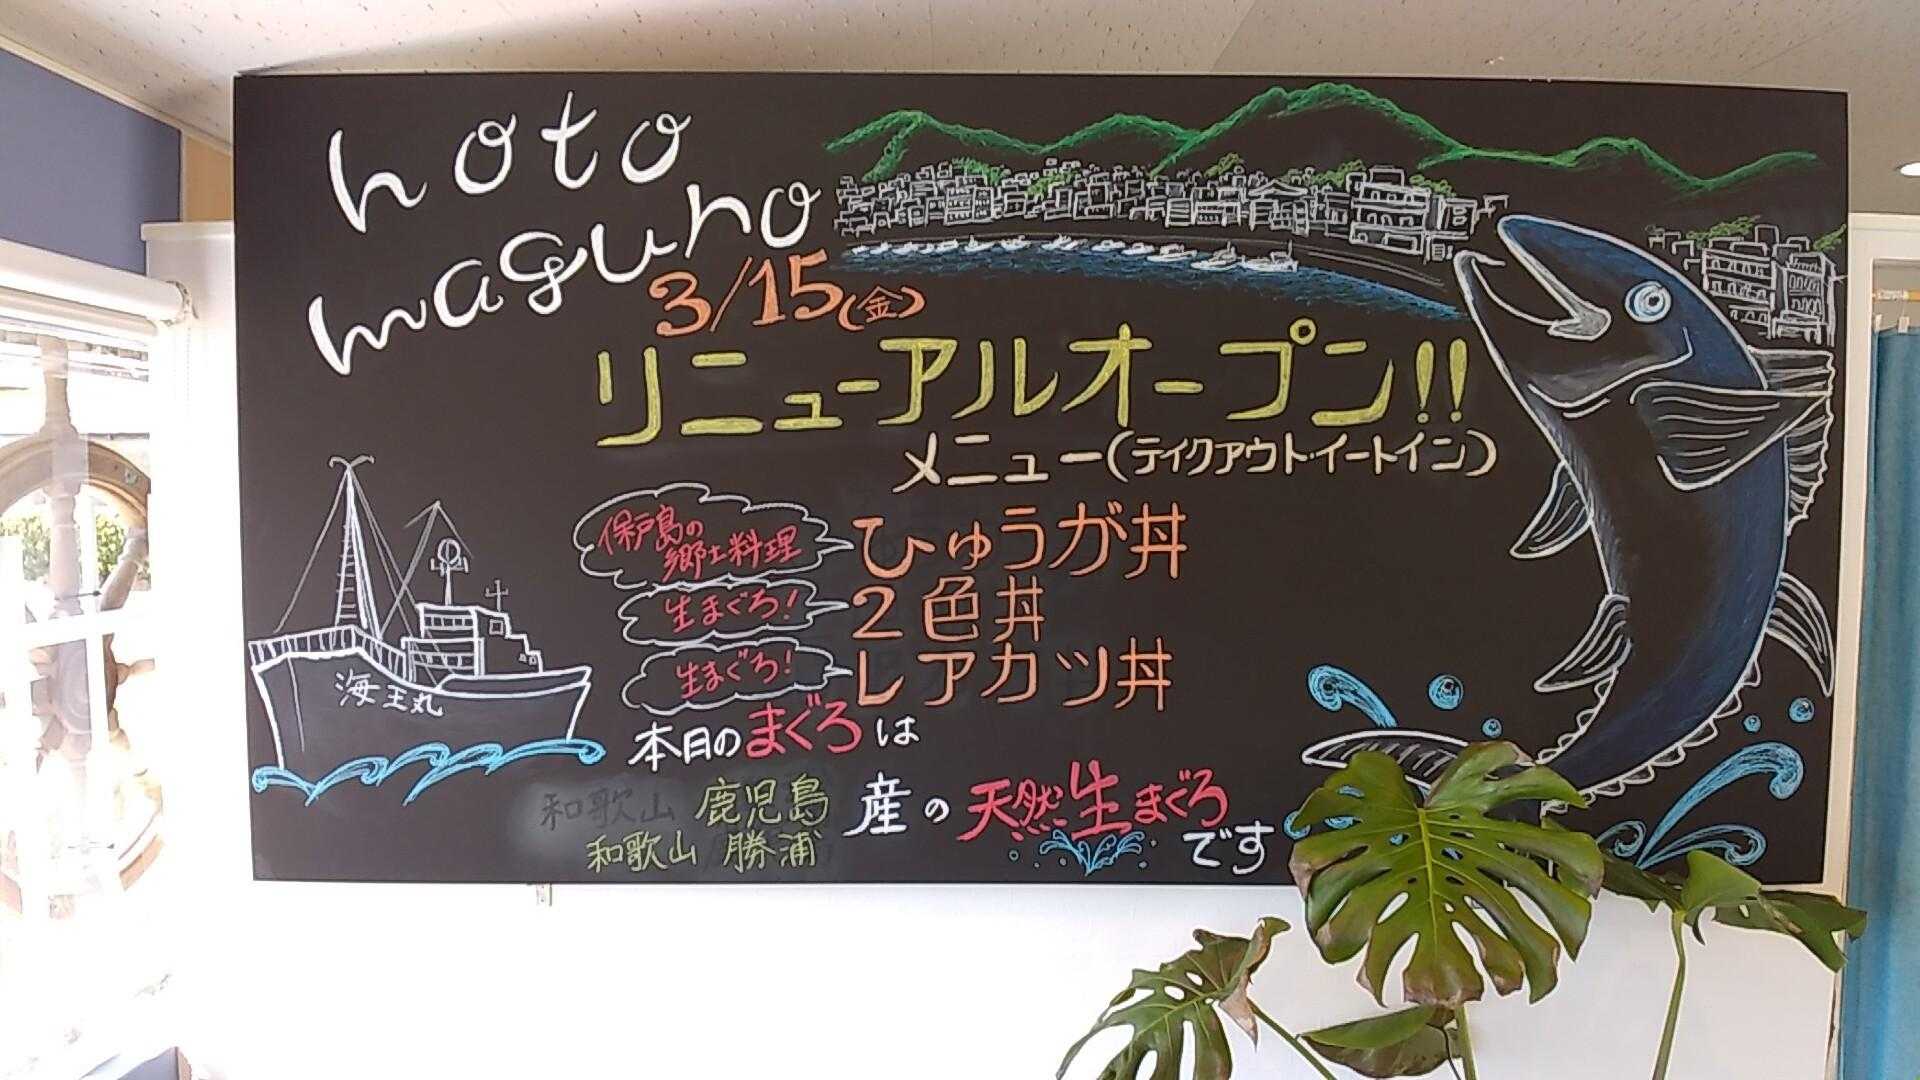 hoto
maguro
3/15(金)
リニューアルオープン!!
メニュー(テイクアウト・イートイン)
保戸島の
郷土料理
ひゅうが丼
生まぐろ!
2色丼
生まぐろ!
レアカツ丼
海王丸
本日のまぐろは
和歌山 鹿児島 産の天然生まぐろ
和歌山 勝浦
です